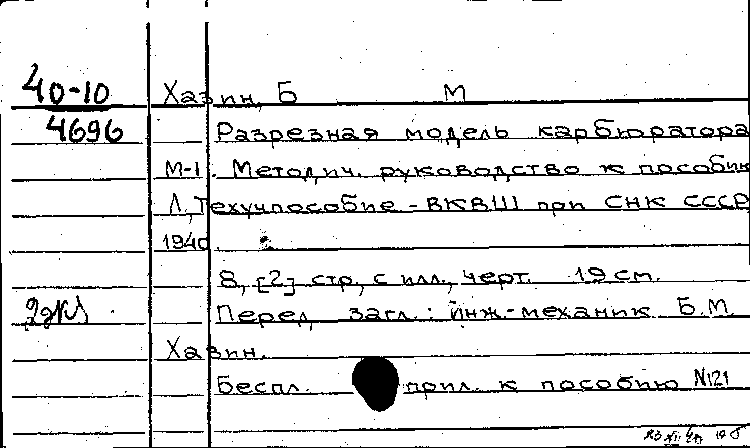 40-10 Хазин, Б М
4696 Разрезная модель карбюратора
М-1. Методич. руководство к пособию
Л, Техучпособие - ВКВШ при СНК СССР
1940.
8, [2] стр, с илл., черт. 19 см.
2экз Перед загл.: инж.-механик Б.М.
Хазин.
Беспл. прил. к пособию №121